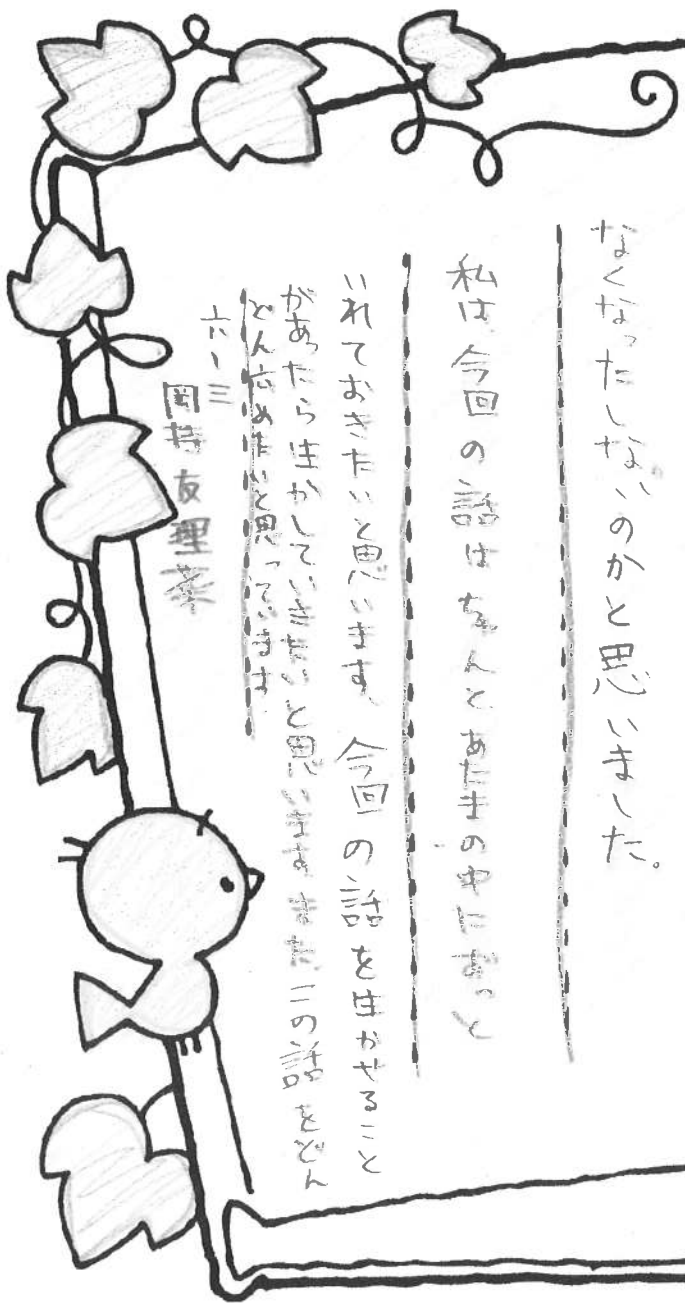 なくなったしないのかと思いました。
私は、今回の話はちゃんとあたまの中にずっと
いれておきたいと思います。今回の話を生かせること
があったら生かしていきたいと思います。また、この話をどん
どん広めたいと思っています。
六-三
岡持友理菜